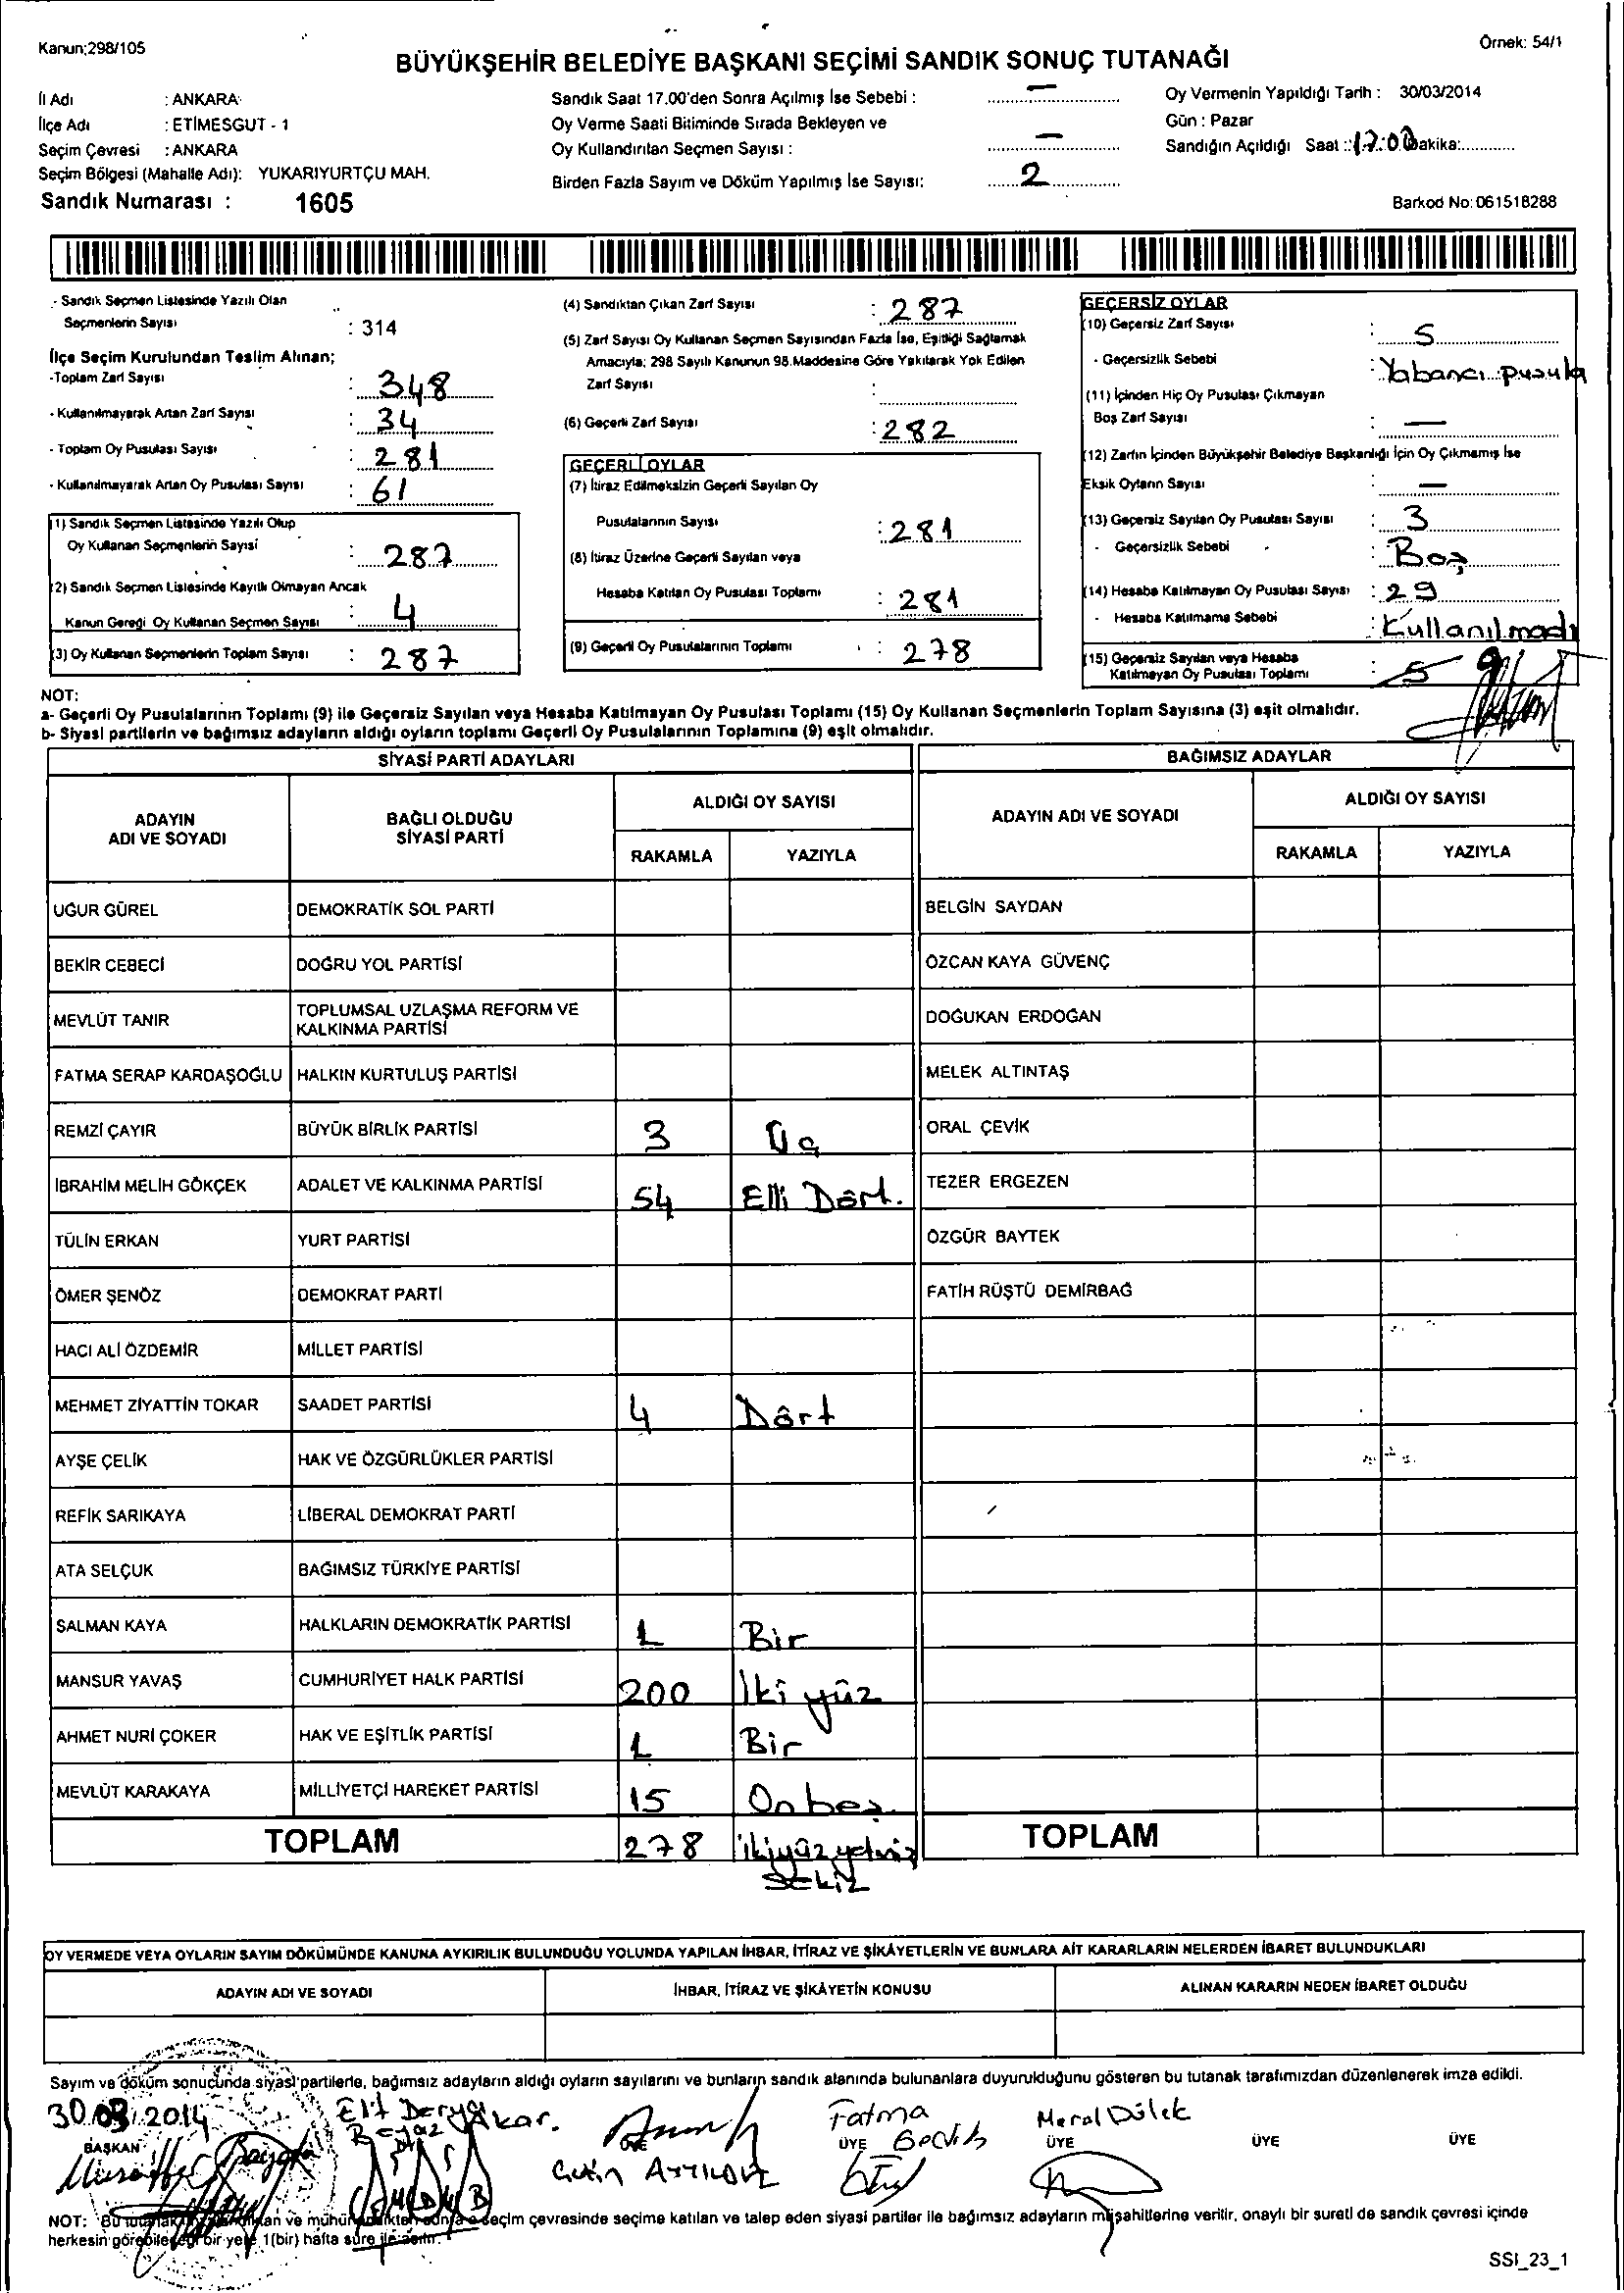 Kanun;298/105
Örnek: 54/1
BÜYÜKŞEHİR BELEDİYE BAŞKANI SEÇİMİ SANDIK SONUÇ TUTANAĞI
İl Adı : ANKARA
İlçe Adı : ETİMESGUT - 1
Seçim Çevresi : ANKARA
Seçim Bölgesi (Mahalle Adı): YUKARIYURTÇU MAH.
Sandık Numarası : 1605
Sandık Saat 17.00'den Sonra Açılmış İse Sebebi : —
Oy Verme Saati Bitiminde Sırada Bekleyen ve
Oy Kullandırılan Seçmen Sayısı : —
Birden Fazla Sayım ve Döküm Yapılmış İse Sayısı: 2
Oy Vermenin Yapıldığı Tarih : 30/03/2014
Gün : Pazar
Sandığın Açıldığı Saat : 17:00 Dakika:
Barkod No: 061518288
- Sandık Seçmen Listesinde Yazılı Olan
Seçmenlerin Sayısı : 314
İlçe Seçim Kurulundan Teslim Alınan;
-Toplam Zarf Sayısı : 348
- Kullanılmayarak Artan Zarf Sayısı : 34
- Toplam Oy Pusulası Sayısı : 281
- Kullanılmayarak Artan Oy Pusulası Sayısı : 61
(1) Sandık Seçmen Listesinde Yazılı Olup
Oy Kullanan Seçmenlerin Sayısı : 287
(2) Sandık Seçmen Listesinde Kayıtlı Olmayan Ancak
Kanun Gereği Oy Kullanan Seçmen Sayısı : 4
(3) Oy Kullanan Seçmenlerin Toplam Sayısı : 287
(4) Sandıktan Çıkan Zarf Sayısı : 287
(5) Zarf Sayısı Oy Kullanan Seçmen Sayısından Fazla İse, Eşitliği Sağlamak
Amacıyla; 298 Sayılı Kanunun 98.Maddesine Göre Yakılarak Yok Edilen
Zarf Sayısı :
(6) Geçerli Zarf Sayısı : 282
GEÇERLİ OYLAR
(7) İtiraz Edilmeksizin Geçerli Sayılan Oy
Pusulalarının Sayısı : 281
(8) İtiraz Üzerine Geçerli Sayılan veya
Hesaba Katılan Oy Pusulası Toplamı : 281
(9) Geçerli Oy Pusulalarının Toplamı : 278
GEÇERSİZ OYLAR
(10) Geçersiz Zarf Sayısı : 5
- Geçersizlik Sebebi : Yabancı pusula
(11) İçinden Hiç Oy Pusulası Çıkmayan
Boş Zarf Sayısı : —
(12) Zarfın İçinden Büyükşehir Belediye Başkanlığı İçin Oy Çıkmamış İse
Eksik Oyların Sayısı : —
(13) Geçersiz Sayılan Oy Pusulası Sayısı : 3
- Geçersizlik Sebebi : Boş
(14) Hesaba Katılmayan Oy Pusulası Sayısı : 29
- Hesaba Katılmama Sebebi : Kullanılmadı
(15) Geçersiz Sayılan veya Hesaba
Katılmayan Oy Pusulası Toplamı : 5
NOT:
a- Geçerli Oy Pusulalarının Toplamı (9) ile Geçersiz Sayılan veya Hesaba Katılmayan Oy Pusulası Toplamı (15) Oy Kullanan Seçmenlerin Toplam Sayısına (3) eşit olmalıdır.
b- Siyasi partilerin ve bağımsız adayların aldığı oyların toplamı Geçerli Oy Pusulalarının Toplamına (9) eşit olmalıdır.
SİYASİ PARTİ ADAYLARI BAĞIMSIZ ADAYLAR
ADAYIN ADI VE SOYADI BAĞLI OLDUĞU SİYASİ PARTİ ALDIĞI OY SAYISI ADAYIN ADI VE SOYADI ALDIĞI OY SAYISI
RAKAMLA YAZIYLA RAKAMLA YAZIYLA
UĞUR GÜREL DEMOKRATİK SOL PARTİ BELGİN SAYDAN
BEKİR CEBECİ DOĞRU YOL PARTİSİ ÖZCAN KAYA GÜVENÇ
MEVLÜT TANIR TOPLUMSAL UZLAŞMA REFORM VE KALKINMA PARTİSİ DOĞUKAN ERDOĞAN
FATMA SERAP KARDAŞOĞLU HALKIN KURTULUŞ PARTİSİ MELEK ALTINTAŞ
REMZİ ÇAYIR BÜYÜK BİRLİK PARTİSİ 3 Üç ORAL ÇEVİK
İBRAHİM MELİH GÖKÇEK ADALET VE KALKINMA PARTİSİ 54 Elli Dört. TEZER ERGEZEN
TÜLİN ERKAN YURT PARTİSİ ÖZGÜR BAYTEK
ÖMER ŞENÖZ DEMOKRAT PARTİ FATİH RÜŞTÜ DEMİRBAĞ
HACI ALİ ÖZDEMİR MİLLET PARTİSİ
MEHMET ZİYATTİN TOKAR SAADET PARTİSİ 4 Dört
AYŞE ÇELİK HAK VE ÖZGÜRLÜKLER PARTİSİ
REFİK SARIKAYA LİBERAL DEMOKRAT PARTİ
ATA SELÇUK BAĞIMSIZ TÜRKİYE PARTİSİ
SALMAN KAYA HALKLARIN DEMOKRATİK PARTİSİ 1 Bir
MANSUR YAVAŞ CUMHURİYET HALK PARTİSİ 200 İki yüz
AHMET NURİ ÇOKER HAK VE EŞİTLİK PARTİSİ 1 Bir
MEVLÜT KARAKAYA MİLLİYETÇİ HAREKET PARTİSİ 15 Onbeş
TOPLAM 278 ikiyüzyetmiş sekiz TOPLAM
OY VERMEDE VEYA OYLARIN SAYIM DÖKÜMÜNDE KANUNA AYKIRILIK BULUNDUĞU YOLUNDA YAPILAN İHBAR, İTİRAZ VE ŞİKÂYETLERİN VE BUNLARA AİT KARARLARIN NELERDEN İBARET BULUNDUKLARI
ADAYIN ADI VE SOYADI İHBAR, İTİRAZ VE ŞİKÂYETİN KONUSU ALINAN KARARIN NEDEN İBARET OLDUĞU
Sayım ve döküm sonucunda siyasi partilerle, bağımsız adayların aldığı oyların sayılarını ve bunların sandık alanında bulunanlara duyurulduğunu gösteren bu tutanak tarafımızdan düzenlenerek imza edildi.
30.03.2014 Elif Derya Akar. Fatma Meral Dülek
Beyaz
BAŞKAN ÜYE ÜYE ÜYE ÜYE ÜYE
Çetin
NOT: Bu ve seçim çevresinde seçime katılan ve talep eden siyasi partiler ile bağımsız adayların müşahitlerine verilir, onaylı bir sureti de sandık çevresi içinde
herkesin görebileceği bir yere 1(bir) hafta süre ile asılır.
SSI_23_1